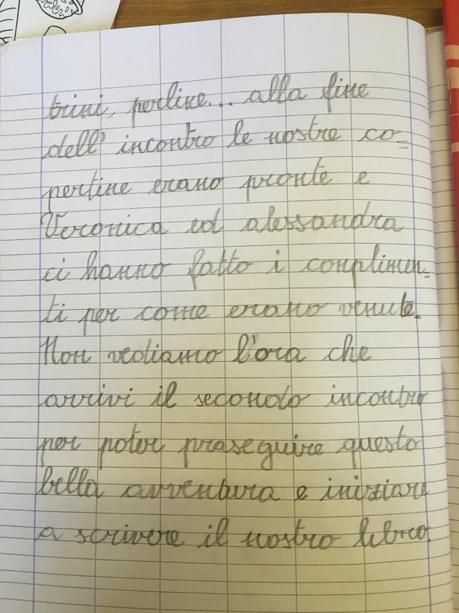 trini, perline... alla fine
dell'incontro le nostre co=
pertine erano pronte e
Veronica ed alessandra
ci hanno fatto i conplimen=
ti per come erano venute.
Non vediamo l'ora che
arrivi il secondo incontro
per poter proseguire questo
bella avventura e iniziare
a scrivere il nostro libro.